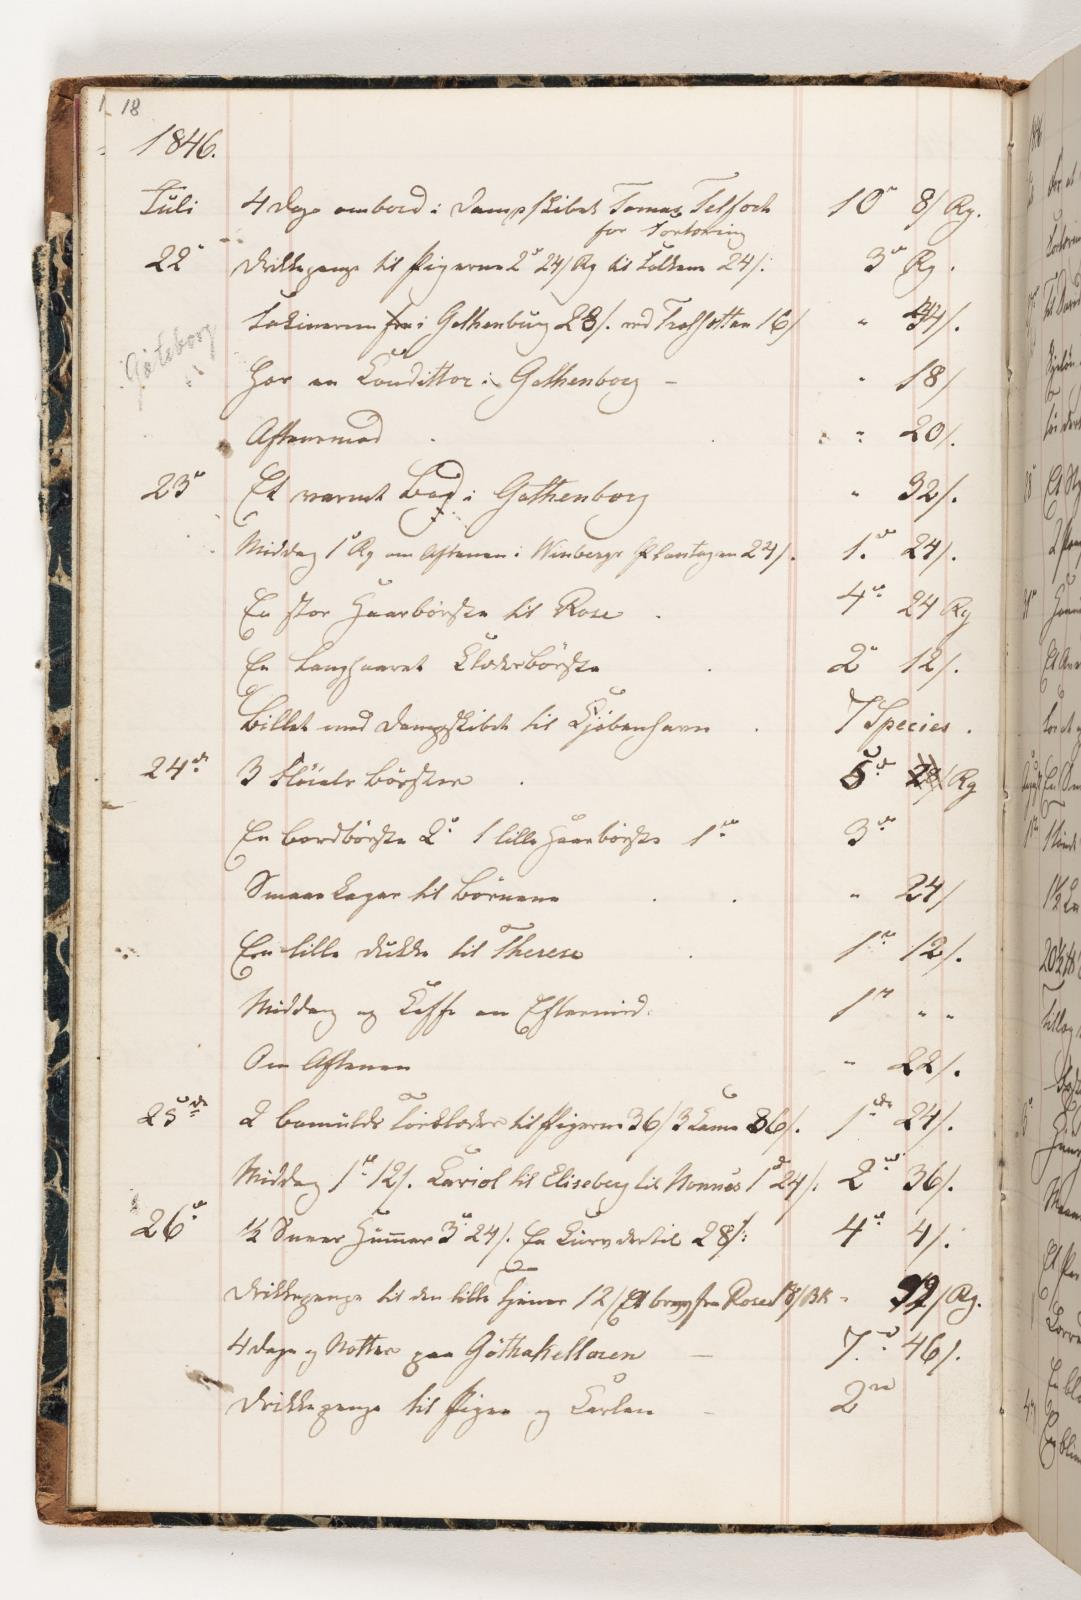 18
1846.
Juli 4 Dage ombord i Dampskibet Tomas Telfort 10 8/ Rg.
for Fortæring
22 Drikkepenge til Pigerne 2 24/ Rg til Folkene 24/. 3 Rg.
i Gothenburg 28/. ved Trolhetten 16/ "
Göteborg
Hos en Conditter i Gothenborg - " 18/
Aftensmad " 20/.
23 Et varmt Bad i Gothenborg " 32/.
Middag 1 Rg om Aftenen i Winbergs Plantagen 24/. 1. 24/.
En stor Haarbörste til Rose . 4 24 Rg
En langhaaret Klæderbörste 2 12/.
Billet med Dampskibet til Kjöbenhavn . 7 Species .
24 3 Flöiels Börster . 5 Rg
En Bordbörste 2 1 lille Haarbörste 1 3
Smaae Kager til Börnene . . " 24/
En lille Dukke til Therese . 1 12/.
Middag og Caffe om Eftermid: 1 " "
Om Aftenen " 22/.
25 2 Bomulds Törklæder til Pigerne 36/ 3 36/. 1 24/.
Middag 1 12/. Kariol til Eliseberg til Nonnes 1 24/. 2 36/.
26 1/2 Hummer 3 24/. En Kurv dertil 28/: 4 4/.
Drikkepenge til den lille 12/ Et fra Rosed 18/ BK " Rg.
4 Dage og Nætter paa Göthakellaren — 7. 46/.
Drikkepenge til Pigen og Karlen - 2